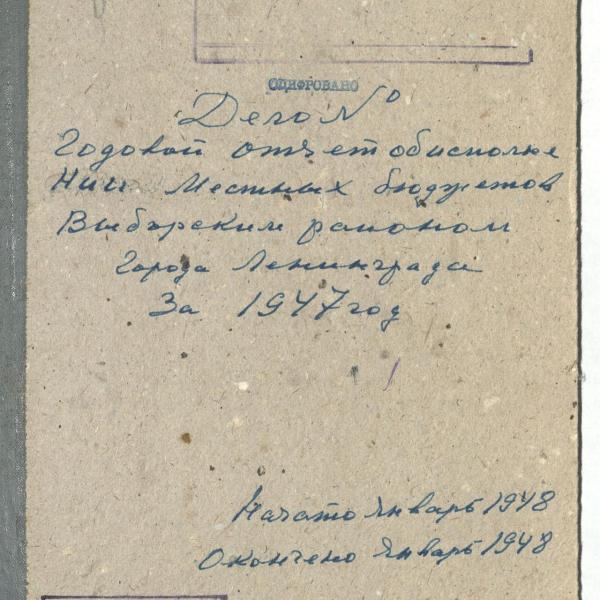 ОЦИФРОВАНО
Дело №
Годовой отчет об исполне
нии местных бюджетов
Выборским районом
города Ленинграда
За 1947 год
Начато январь 1948
Окончено январь 1948